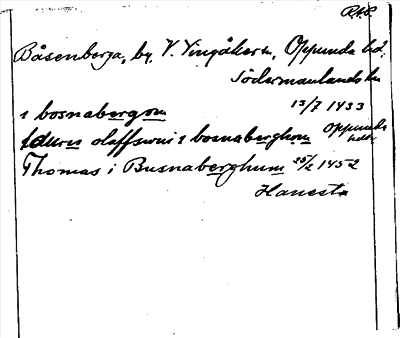 R.A.P.
Båsenberga, by, V. Vingåkers sn, Oppunda hd,
Södermanlands län
13/7 1433
i bosnabergom
laures olaffswni i bosnaberghom Oppunda hdr.
Thomas i Busnaberghum 25/2 1452
Hanesta